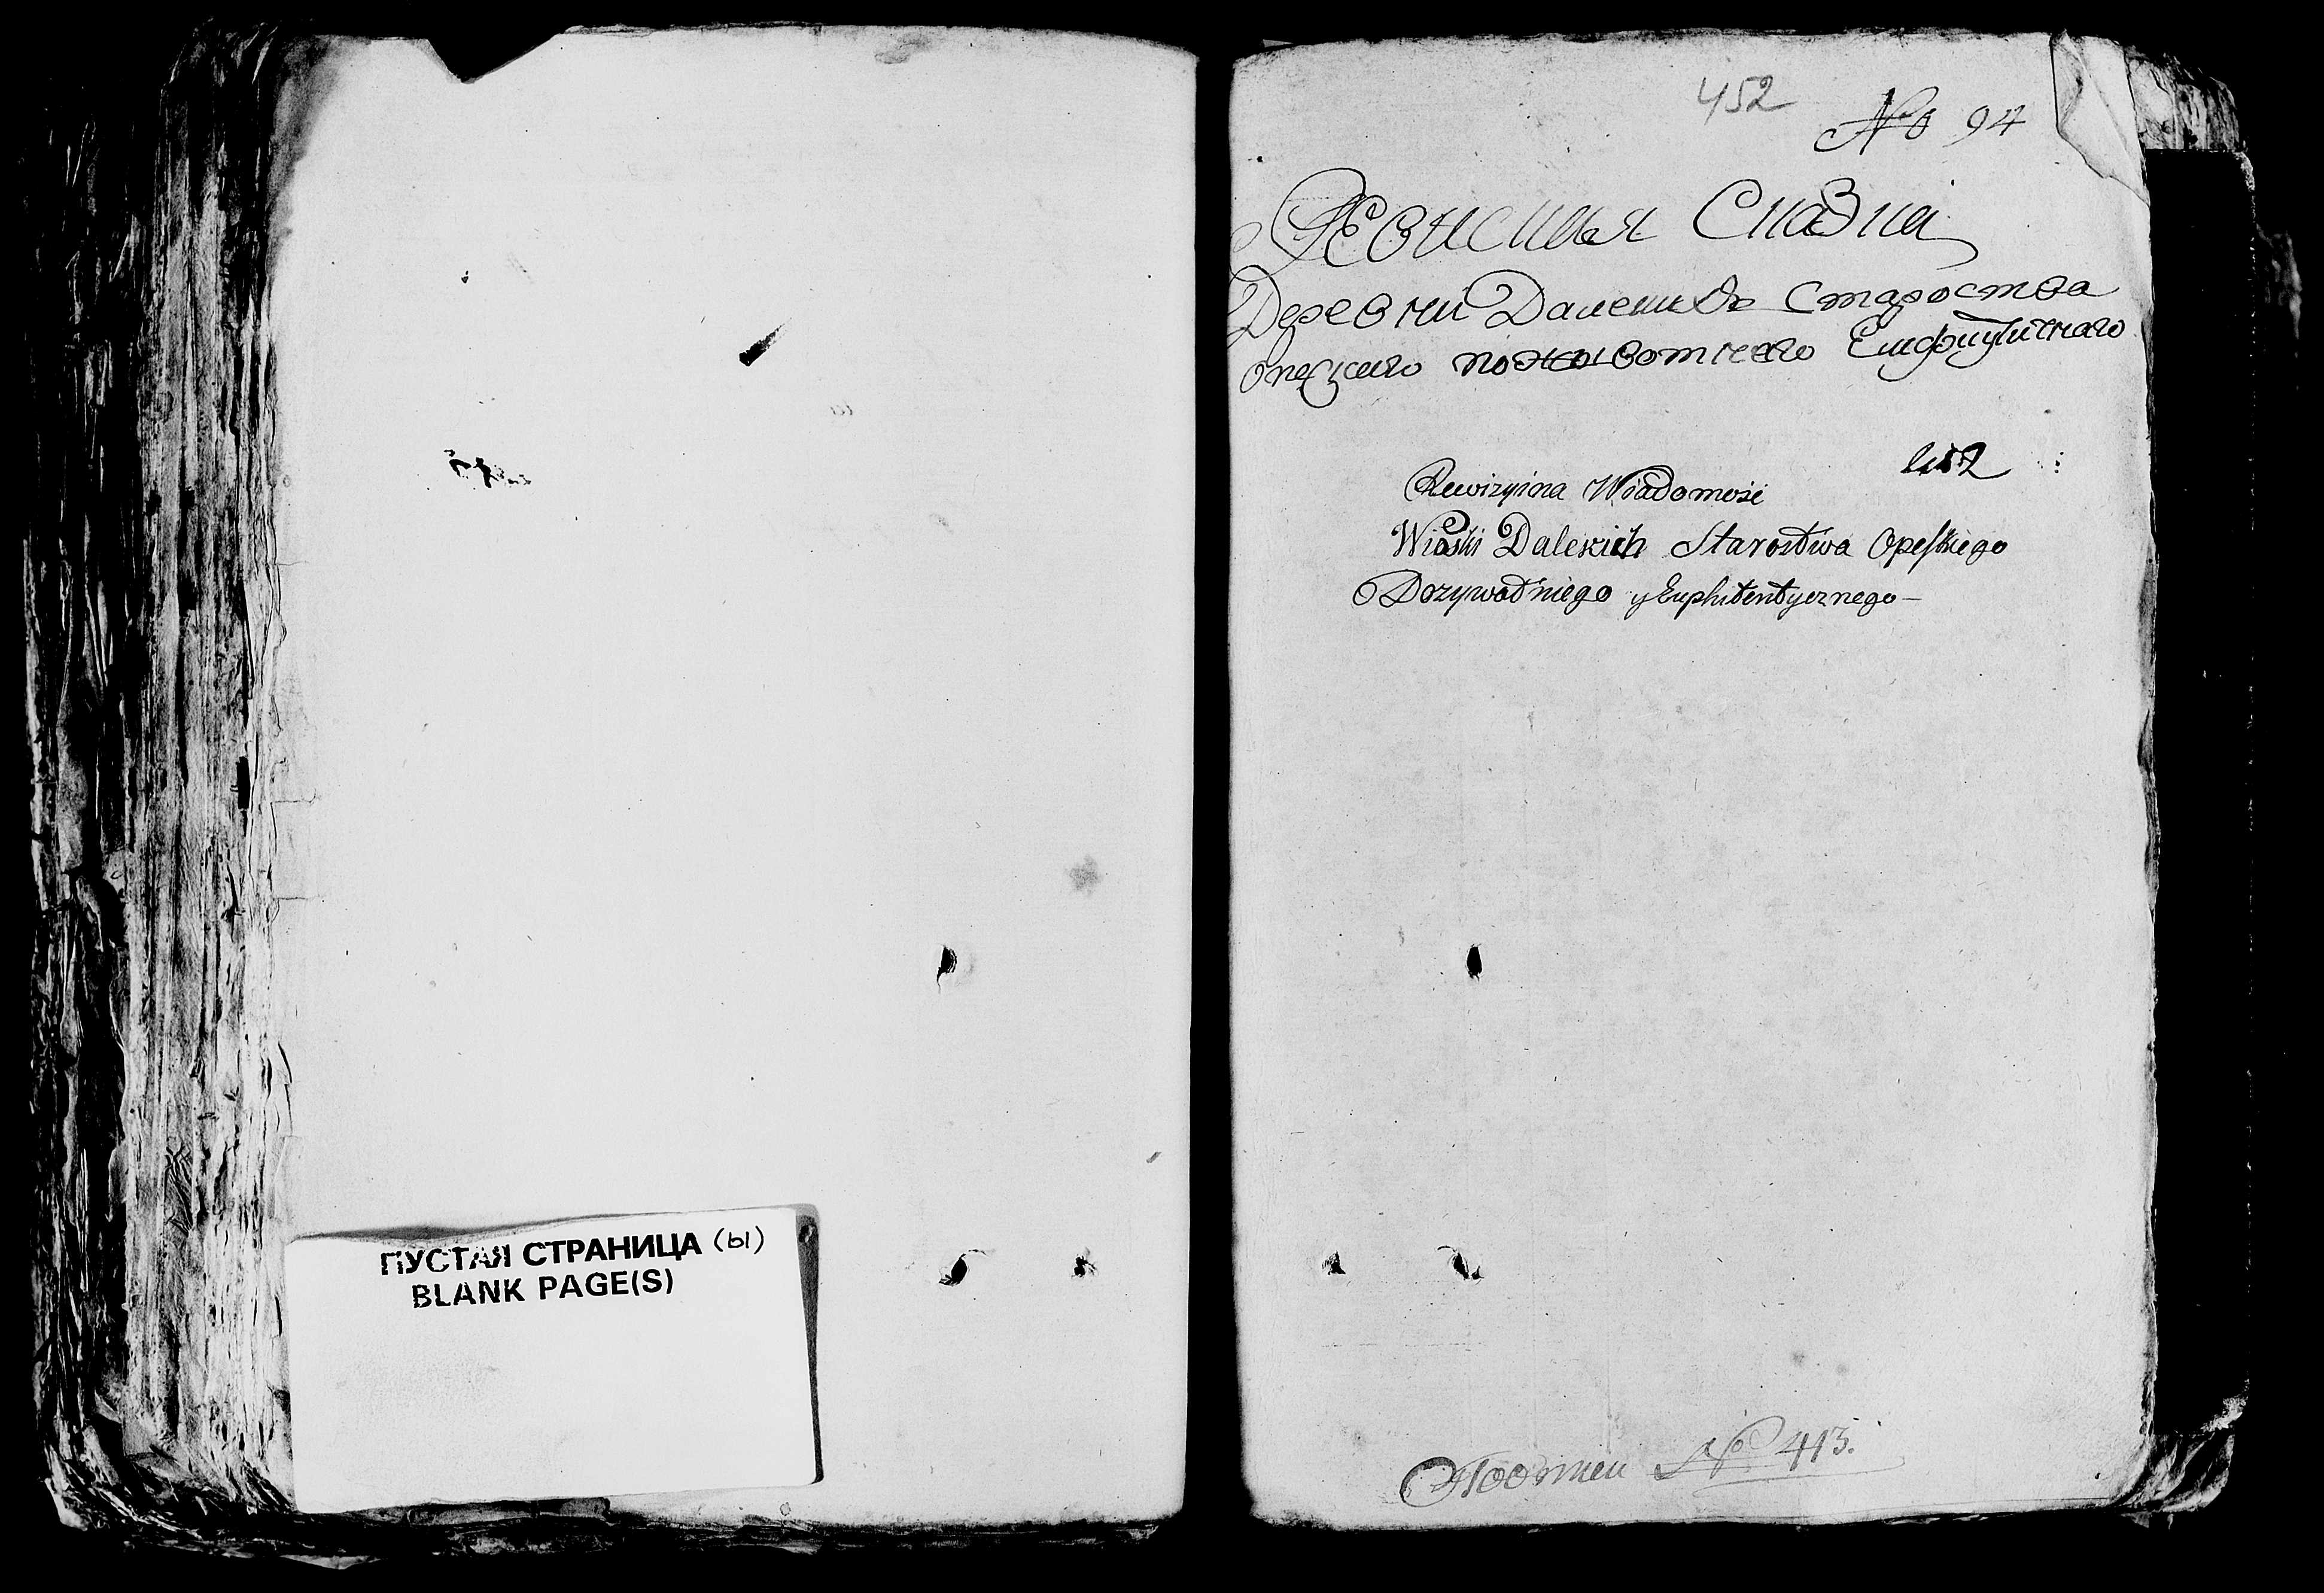 ПУСТАЯ СТРАНИЦА (ы)
BLANK PAGE(S)
452
№ 94
Ревисшая Сказка
Деревни Далеких Староства
Опеского пожывотнего Емфитутичнаго
452
Rewizyina Wiadomość
Wioski Dalekich Starostwa Opeskiego
Dozywotniego y Emphitentycznego
№ 413.